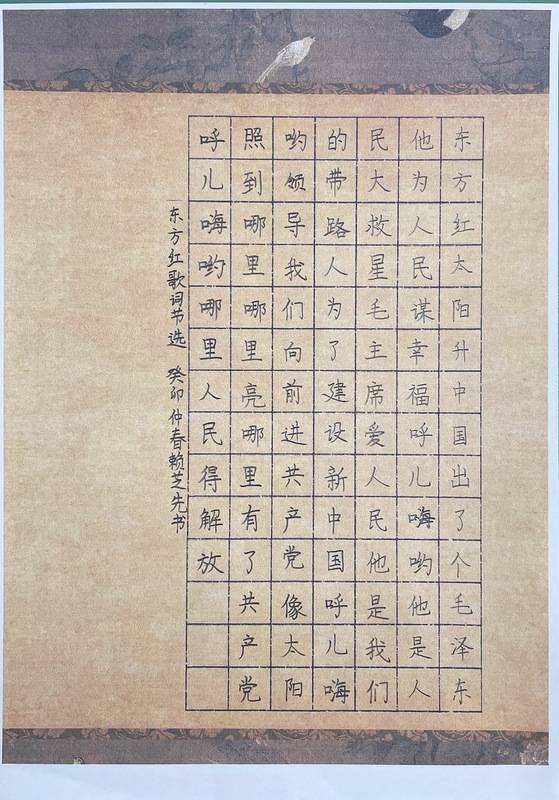 东方红太阳升中国出了个毛泽东
他为人民谋幸福呼儿嗨哟他是人
民大救星毛主席爱人民他是我们
的带路人为了建设新中国呼儿嗨
哟领导我们向前进共产党像太阳
照到哪里哪里亮哪里有了共产党
呼儿嗨哟哪里人民得解放
东方红歌词节选 癸卯仲春赖芝先书